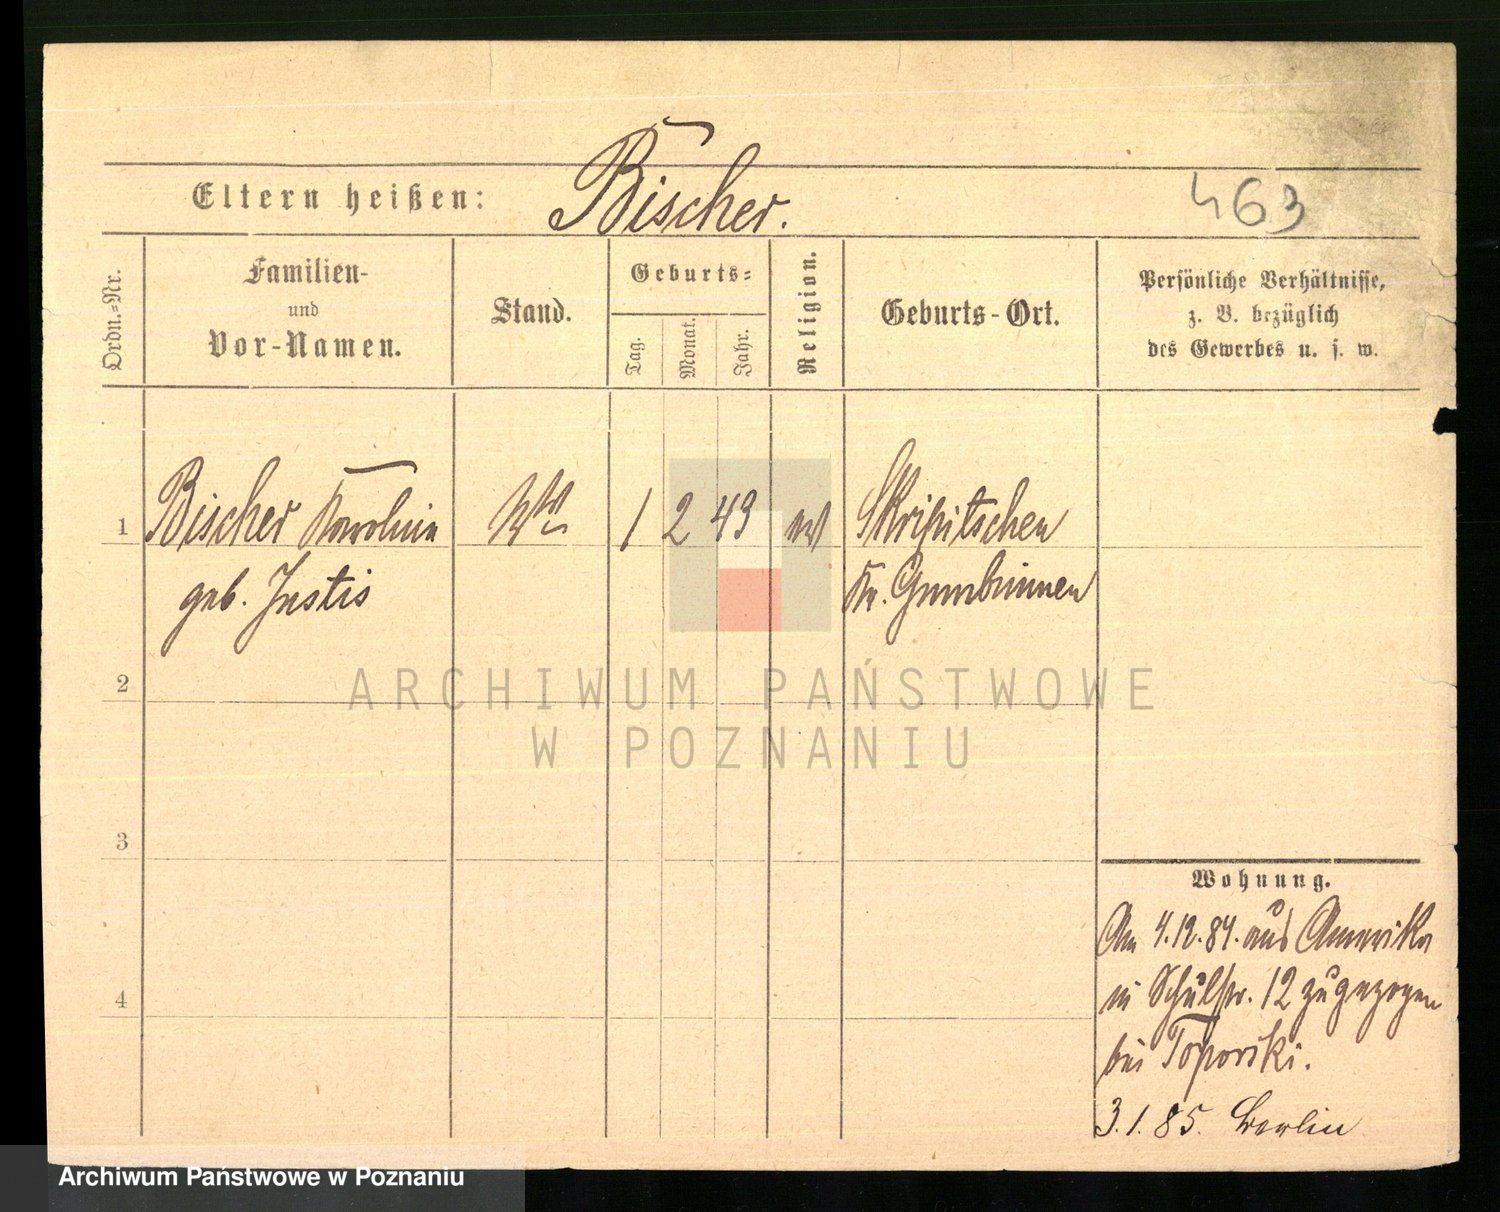 Eltern heißen: Bischer. 463
Ordn.-Nr. Familien- und Vor-Namen. Stand. Geburts- Tag. Monat. Jahr. Religion. Geburts-Ort. Persönliche Verhältnisse, z. B. bezüglich des Gewerbes u. s. w.
1 Bischer Karolina Wwe 1 2 43 ev Skripitschen
geb. Justis Kr. Gumbinnen
2
3
4
Wohnung.
Am 4.12.84. aus Amerika
in Schulstr. 12 zugezogen
bei Toporski.
3.1.85. Berlin
ARCHIWUM PAŃSTWOWE
W POZNANIU
Archiwum Państwowe w Poznaniu